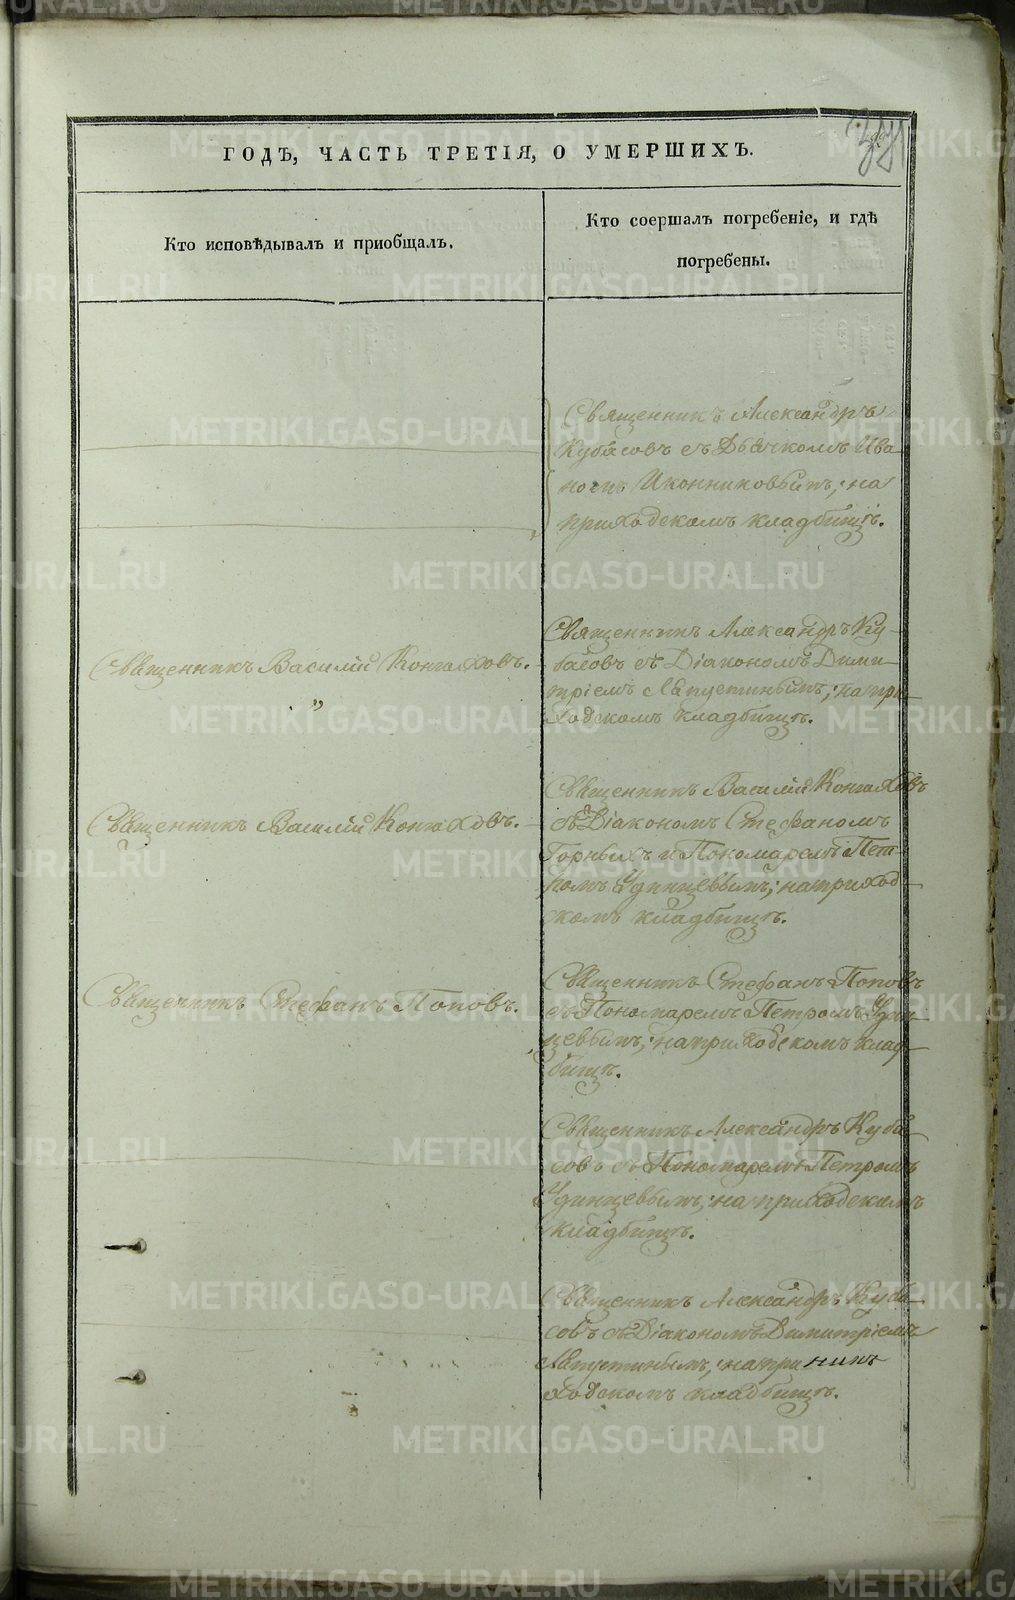 ГОДЪ, ЧАСТЬ ТРЕТІЯ, О УМЕРШИХЪ.
Кто исповѣдывалъ и приобщалъ.
Кто соершалъ погребеніе, и гдѣ
погребены.
Священникъ Александръ
Кубасовъ съ Дьячкомъ Ива-
номъ Иконниковымъ; на
приходскомъ кладбищѣ.
Священникъ Василій Конюховъ.
"
Священникъ Александръ Ку-
басовъ съ Діакономъ Дими-
тріемъ Лапустинымъ; на при-
ходскомъ кладбищѣ.
Священникъ Василій Конюховъ.
Священникъ Василій Конюховъ
съ Діакономъ Стефаномъ
Горныхъ и Пономаремъ Пет-
ромъ Удинцевымъ; на приход-
скомъ кладбищѣ.
Священникъ Стефанъ Поповъ.
Священникъ Стефанъ Поповъ
съ Пономаремъ Петромъ Удин-
цевымъ; на приходскомъ клад-
бищѣ.
Священникъ Александръ Куба-
совъ съ Пономаремъ Петромъ
Удинцевымъ; на приходскомъ
кладбищѣ.
Священникъ Александръ Куба-
совъ съ Діакономъ Димитріемъ
Лапустинымъ; на при
ходскомъ кладбищѣ.
METRIKI.GASO-URAL.RU